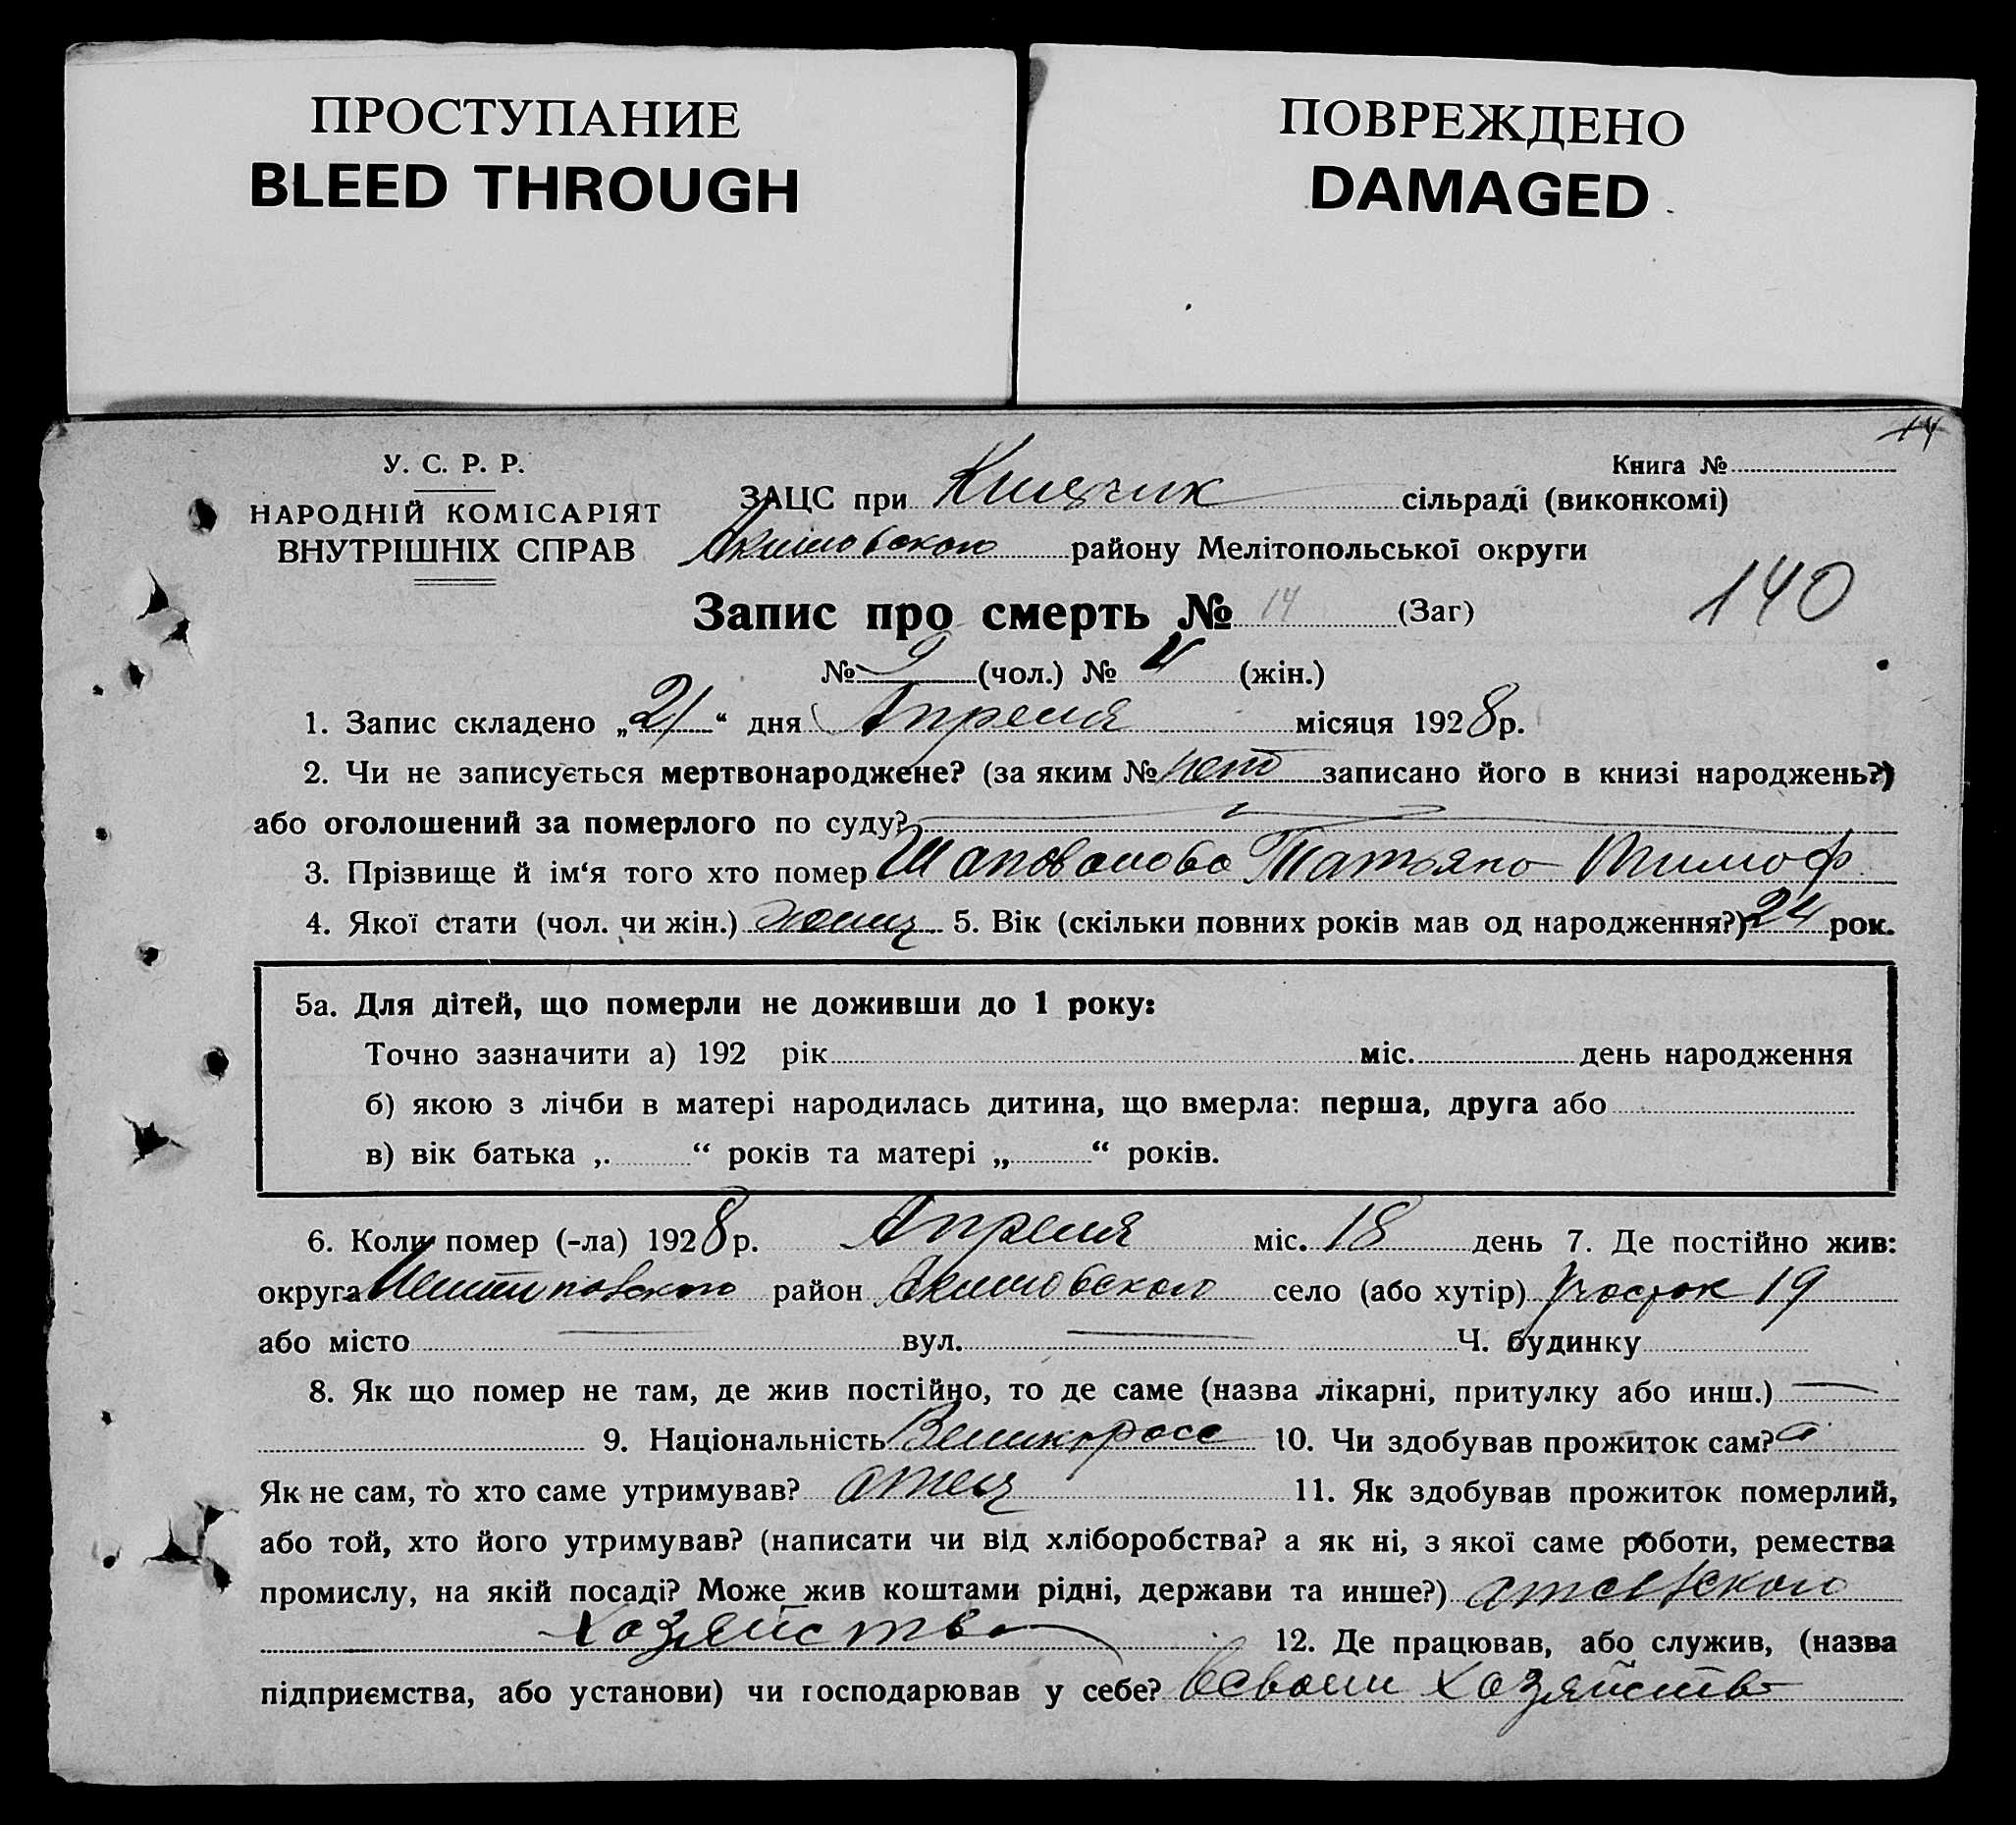 ПРОСТУПАНИЕ
BLEED THROUGH
ПОВРЕЖДЕНО
DAMAGED
14
У. С. Р. Р.
НАРОДНІЙ КОМІСАРІЯТ
ВНУТРІШНІХ СПРАВ
Книга №
ЗАЦС при сільраді (виконкомі)
Акимовского району Мелітопольської округи
140
Запис про смерть № 14 (Заг)
№ (чол.) № (жін.)
1. Запис складено „21“ дня Апреля місяця 1928 р.
2. Чи не записується мертвонароджене? (за яким № нет записано його в книзі народжень?)
або оголошений за померлого по суду?
3. Прізвище й ім‘я того хто помер Шаповалова Татьяна Тимоф
4. Якої стати (чол. чи жін.) 5. Вік (скільки повних років мав од народження?) 24 рок.
5а. Для дітей, що померли не доживши до 1 року:
Точно зазначити а) 192 рік міс. день народження
б) якою з лічби в матері народилась дитина, що вмерла: перша, друга або
в) вік батька „ “ років та матері „ “ років.
6. Коли помер (-ла) 1928 р. Апреля міс. 18 день 7. Де постійно жив:
округа район Акимовского село (або хутір) Участок 19
або місто вул. Ч. будинку
8. Як що помер не там, де жив постійно, то де саме (назва лікарні, притулку або инш.)
9. Національність Великоросс 10. Чи здобував прожиток сам?
Як не сам, то хто саме утримував? отец 11. Як здобував прожиток померлий,
або той, хто його утримував? (написати чи від хліборобства? а як ні, з якої саме роботи, ремества
промислу, на якій посаді? Може жив коштами рідні, держави та инше?)
хозяйства 12. Де працював, або служив, (назва
підприємства, або установи) чи господарював у себе? в своем хозяйстве